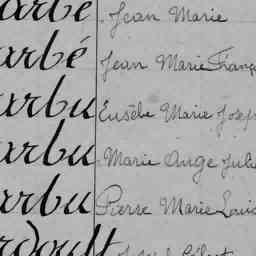 arbé Jean Marie
arbé Jean Marie Franç
arbu Eusèbe Marie Josep
arbu Marie Ange Juli
arbu Pierre Marie Louis
rdoult